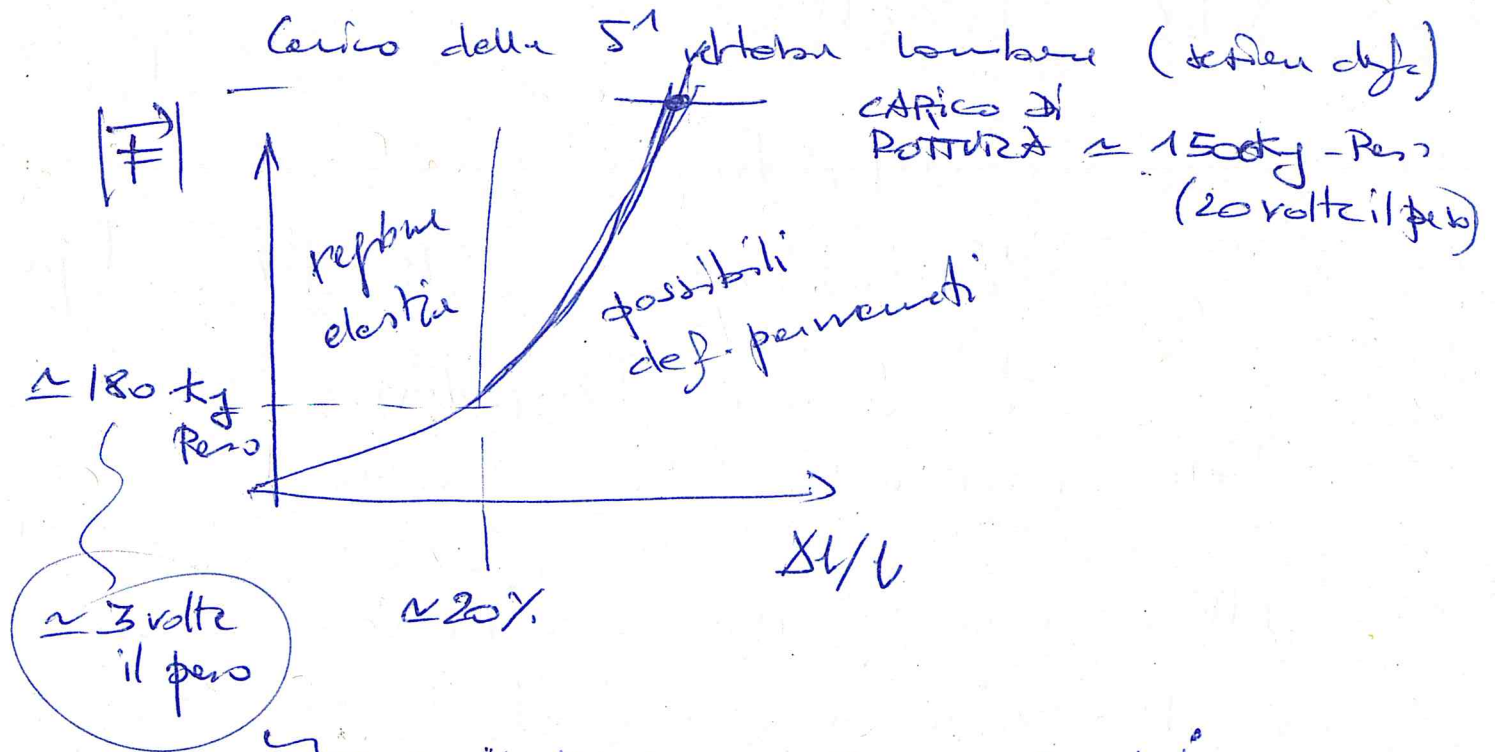 Carico della 5ª vertebra lombare
|F|
CARICO DI
ROTTURA ≃ 1500 kg-Peso
(20 volte il peso)
regione
elastica
possibili
def. permanenti
≃ 180 kg
Peso
≃ 3 volte
il peso
≃ 20%
Δl/l